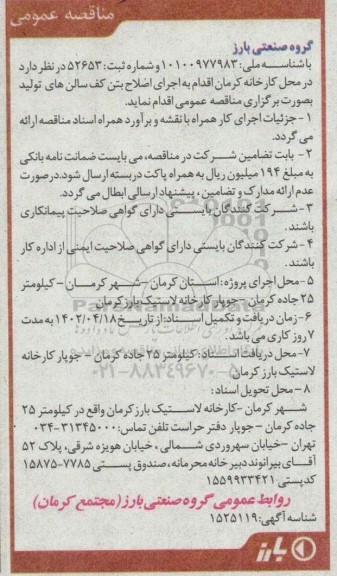 مناقصه عمومی
گروه صنعتی بارز
با شناسه ملی: ۱۰۱۰۰۹۷۷۹۸۳ و شماره ثبت: ۵۲۶۵۳ در نظر دارد
در محل کارخانه کرمان اقدام به اجرای اصلاح بتن کف سالن های تولید
بصورت برگزاری مناقصه عمومی اقدام نماید.
۱- جزئیات اجرای کار همراه با نقشه و برآورد همراه اسناد مناقصه ارائه
می گردد.
۲- بابت تضامین شرکت در مناقصه، می بایست ضمانت نامه بانکی
به مبلغ ۱۹۴ میلیون ریال به همراه پاکت دربسته ارسال شود. در صورت
عدم ارائه مدارک و تضامین، پیشنهاد ارسالی ابطال می گردد.
۳- شرکت کنندگان بایستی دارای گواهی صلاحیت پیمانکاری
باشند.
۴- شرکت کنندگان بایستی دارای گواهی صلاحیت ایمنی از اداره کار
باشند.
۵- محل اجرای پروژه: استان کرمان – شهر کرمان – کیلومتر
۲۵ جاده کرمان – جوپار کارخانه لاستیک بارز کرمان
۶- زمان دریافت و تکمیل اسناد: از تاریخ ۱۴۰۲/۰۴/۱۸ به مدت
۷ روز کاری می باشد.
۷- محل دریافت اسناد: کیلومتر ۲۵ جاده کرمان – جوپار کارخانه
لاستیک بارز کرمان
۸- محل تحویل اسناد:
شهر کرمان - کارخانه لاستیک بارز کرمان واقع در کیلومتر ۲۵
جاده کرمان – جوپار دفتر حراست تلفن تماس: ۳۱۳۴۵۰۰۰-۰۳۴
تهران – خیابان سهروردی شمالی، خیابان هویزه شرقی، پلاک ۵۲
آقای بیرانوند دبیرخانه محرمانه، صندوق پستی ۷۷۸۵-۱۵۸۷۵
کدپستی ۱۵۵۹۹۳۳۴۲۱
روابط عمومی گروه صنعتی بارز (مجتمع کرمان)
شناسه آگهی: ۱۵۲۵۱۱۹
بارز
۰۲۱-۸۸۳۴۹۶۷۰-۵